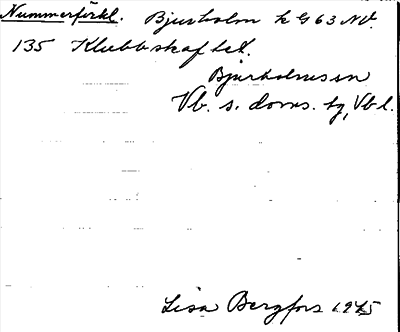 Nummerförkl. Bjurholm k G 63 NV.
135 Klubbskaftet.
Bjurholms sn
Vb. s. doms. tg, Vb l.
Lisa Bergfors 1945